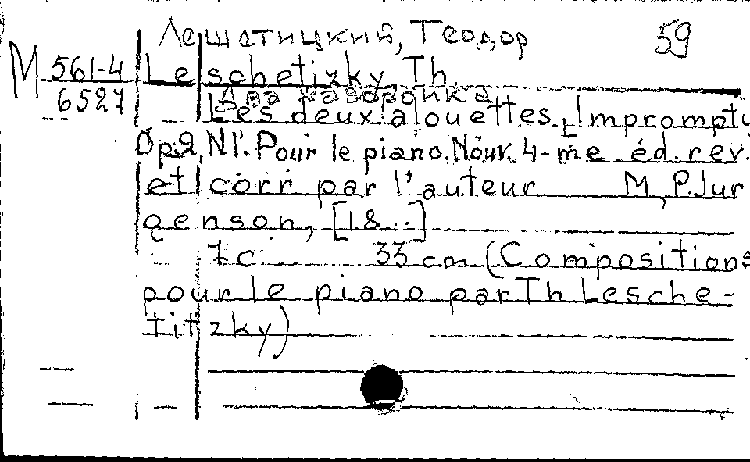 Лешетицкий, Теодор 59
M 561-4 Leschetizky, Th.
6527 Два жаворонка
Les deux alouettes. Impromptu
Op.2, N1. Pour le piano. Nouv. 4-me éd. rev.
et corr par l'auteur M, P. Jur
genson, [18..]
7 c. 33 cm (Compositions
pour le piano par Th Lesche-
titzky)